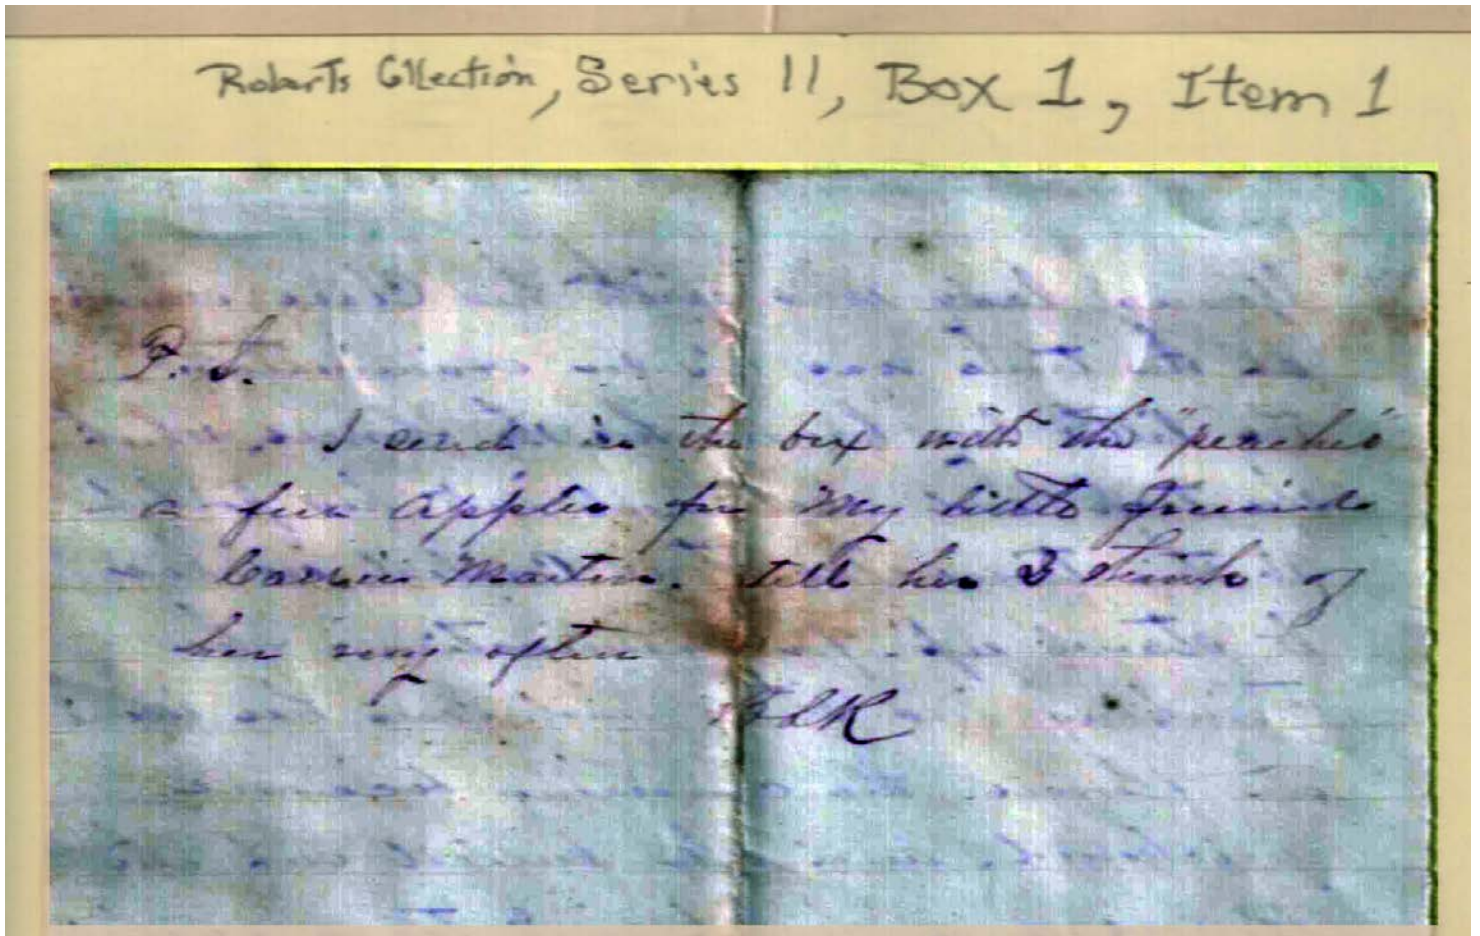 Roberts Collection, Series II, Box 1, Item 1
P.S.
I send in the box with the "peaches"
a few apples for my little friend
Carrie Martin. tell her I think of
her very often